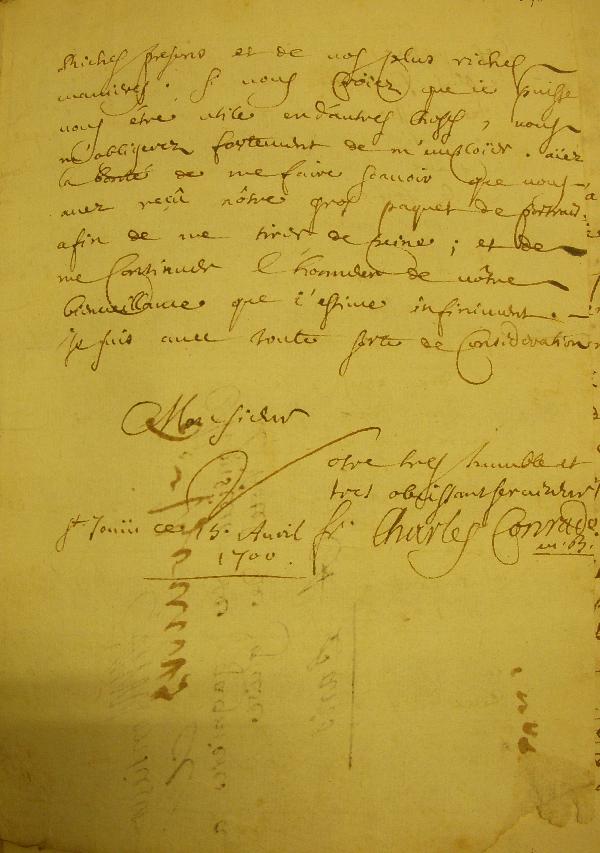 Riches presens et de vos plus riches
manieres. Si vous croïez que ie puisse
vous être utile en d'autres choses, vous
m'obligerez fortement de m'emploïer. aïez
la bonté de me faire scavoir que vous
avez reçû nôtre gros paquet de portraits
afin de me tirer de peine; et de
me continuer l'honneur de vôtre
bienveillance que i'estime infiniment.
je suis avec toute sorte de Consideration
Monsieur
Votre tres humble et
tres obeissant serviteur
ce 15. Avril
1700.
fr. Charles Conrade
m.B.